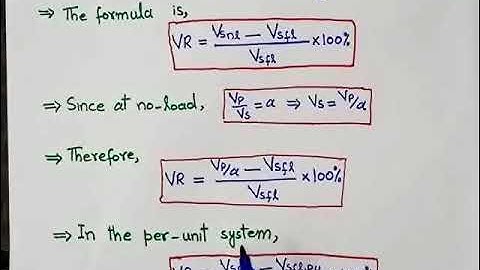 ⇒ The formula is,
VR = (Vsnl − Vsfl) / Vsfl ×100%
⇒ Since at no-load, Vp/Vs = a ⇒ Vs = Vp/a
⇒ Therefore,
VR = (Vp/a − Vsfl) / Vsfl ×100%
⇒ In the per-unit system,